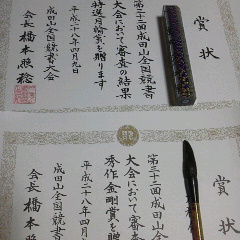 賞状
第三十二回成田山全国競書
大会において審査の結果
特選月輪賞を贈ります
平成二十八年四月九日
成田山全国競書大会
会長 橋本照稔
賞状
第三十二回成田山全国競書
大会において審査
秀作金剛賞を贈
平成二十八年四月
成田山全国競書
会長 橋本